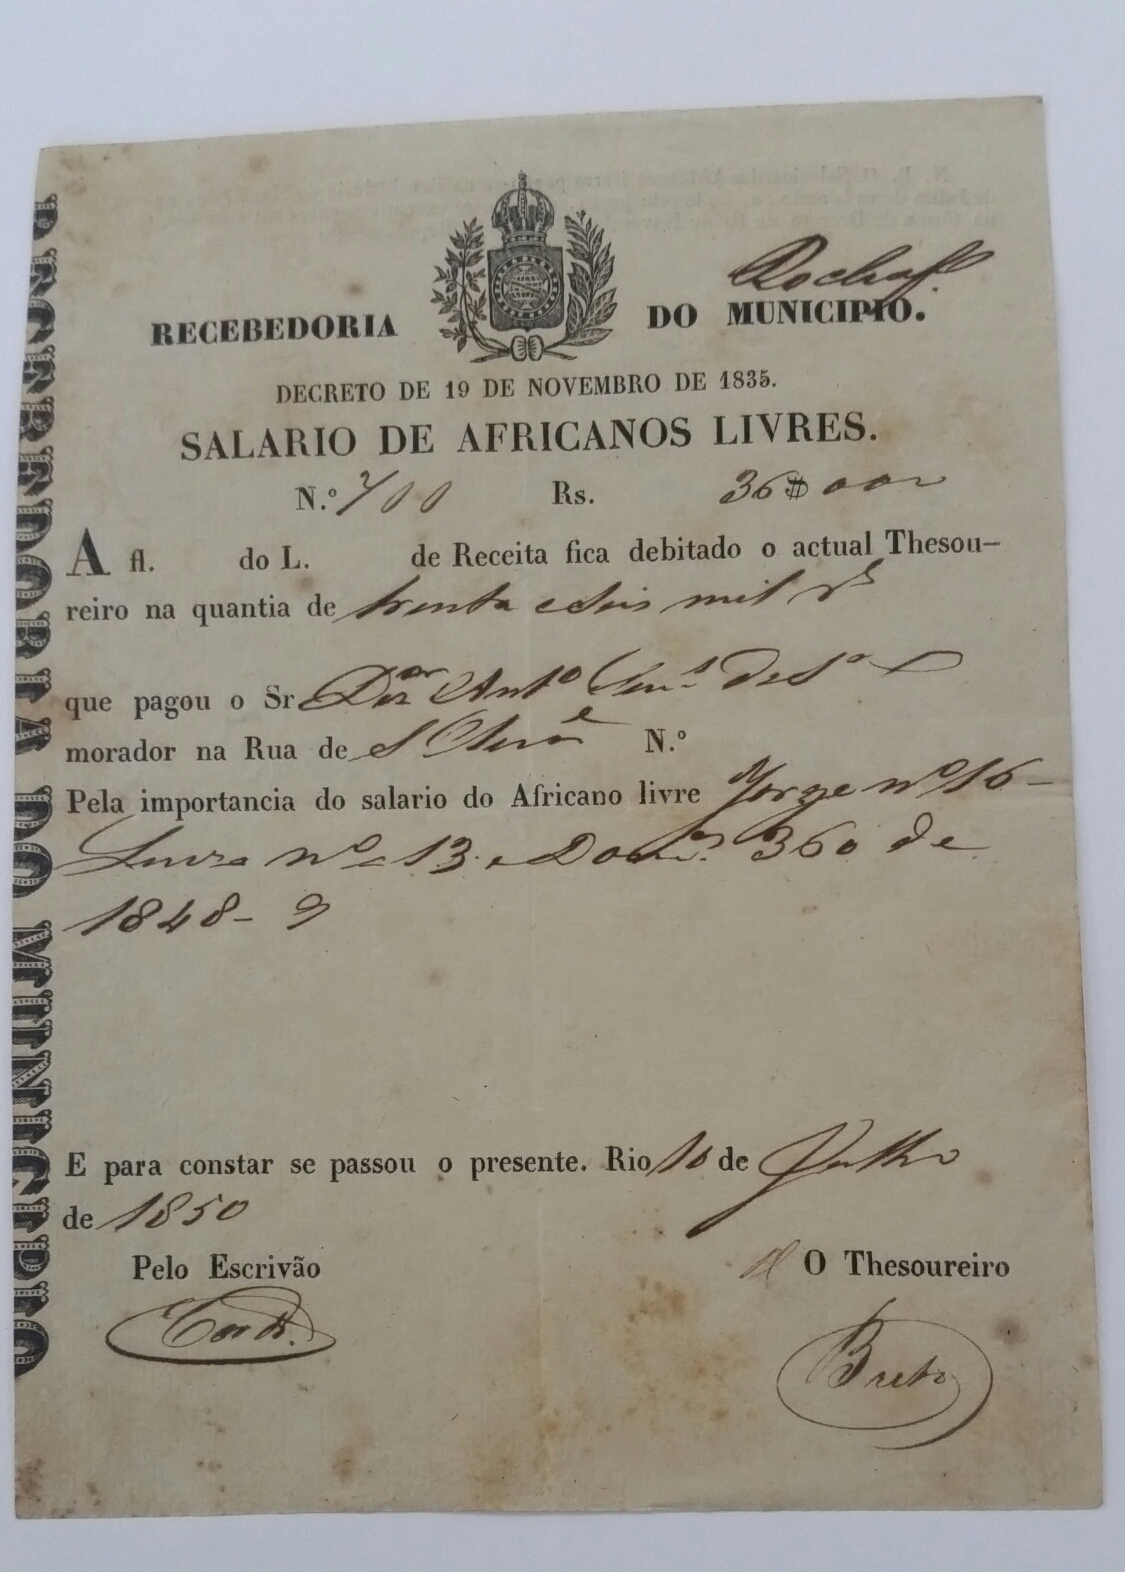 Rocha
RECEBEDORIA DO MUNICIPIO.
DECRETO DE 19 DE NOVEMBRO DE 1835.
SALARIO DE AFRICANOS LIVRES.
N.º 700 Rs. 36$000
A fl. do L. de Receita fica debitado o actual Thesou-
reiro na quantia de trinta e seis mil rs
que pagou o Sr Dor Anto
morador na Rua de N.º
Pela importancia do salario do Africano livre Jorge nº 16 -
Luiza nº 13 e Domos 360 de
1848 - 9
E para constar se passou o presente. Rio 10 de Julho
de 1850
Pelo Escrivão O Thesoureiro
Brito
RECEBEDORIA DO MUNICIPIO